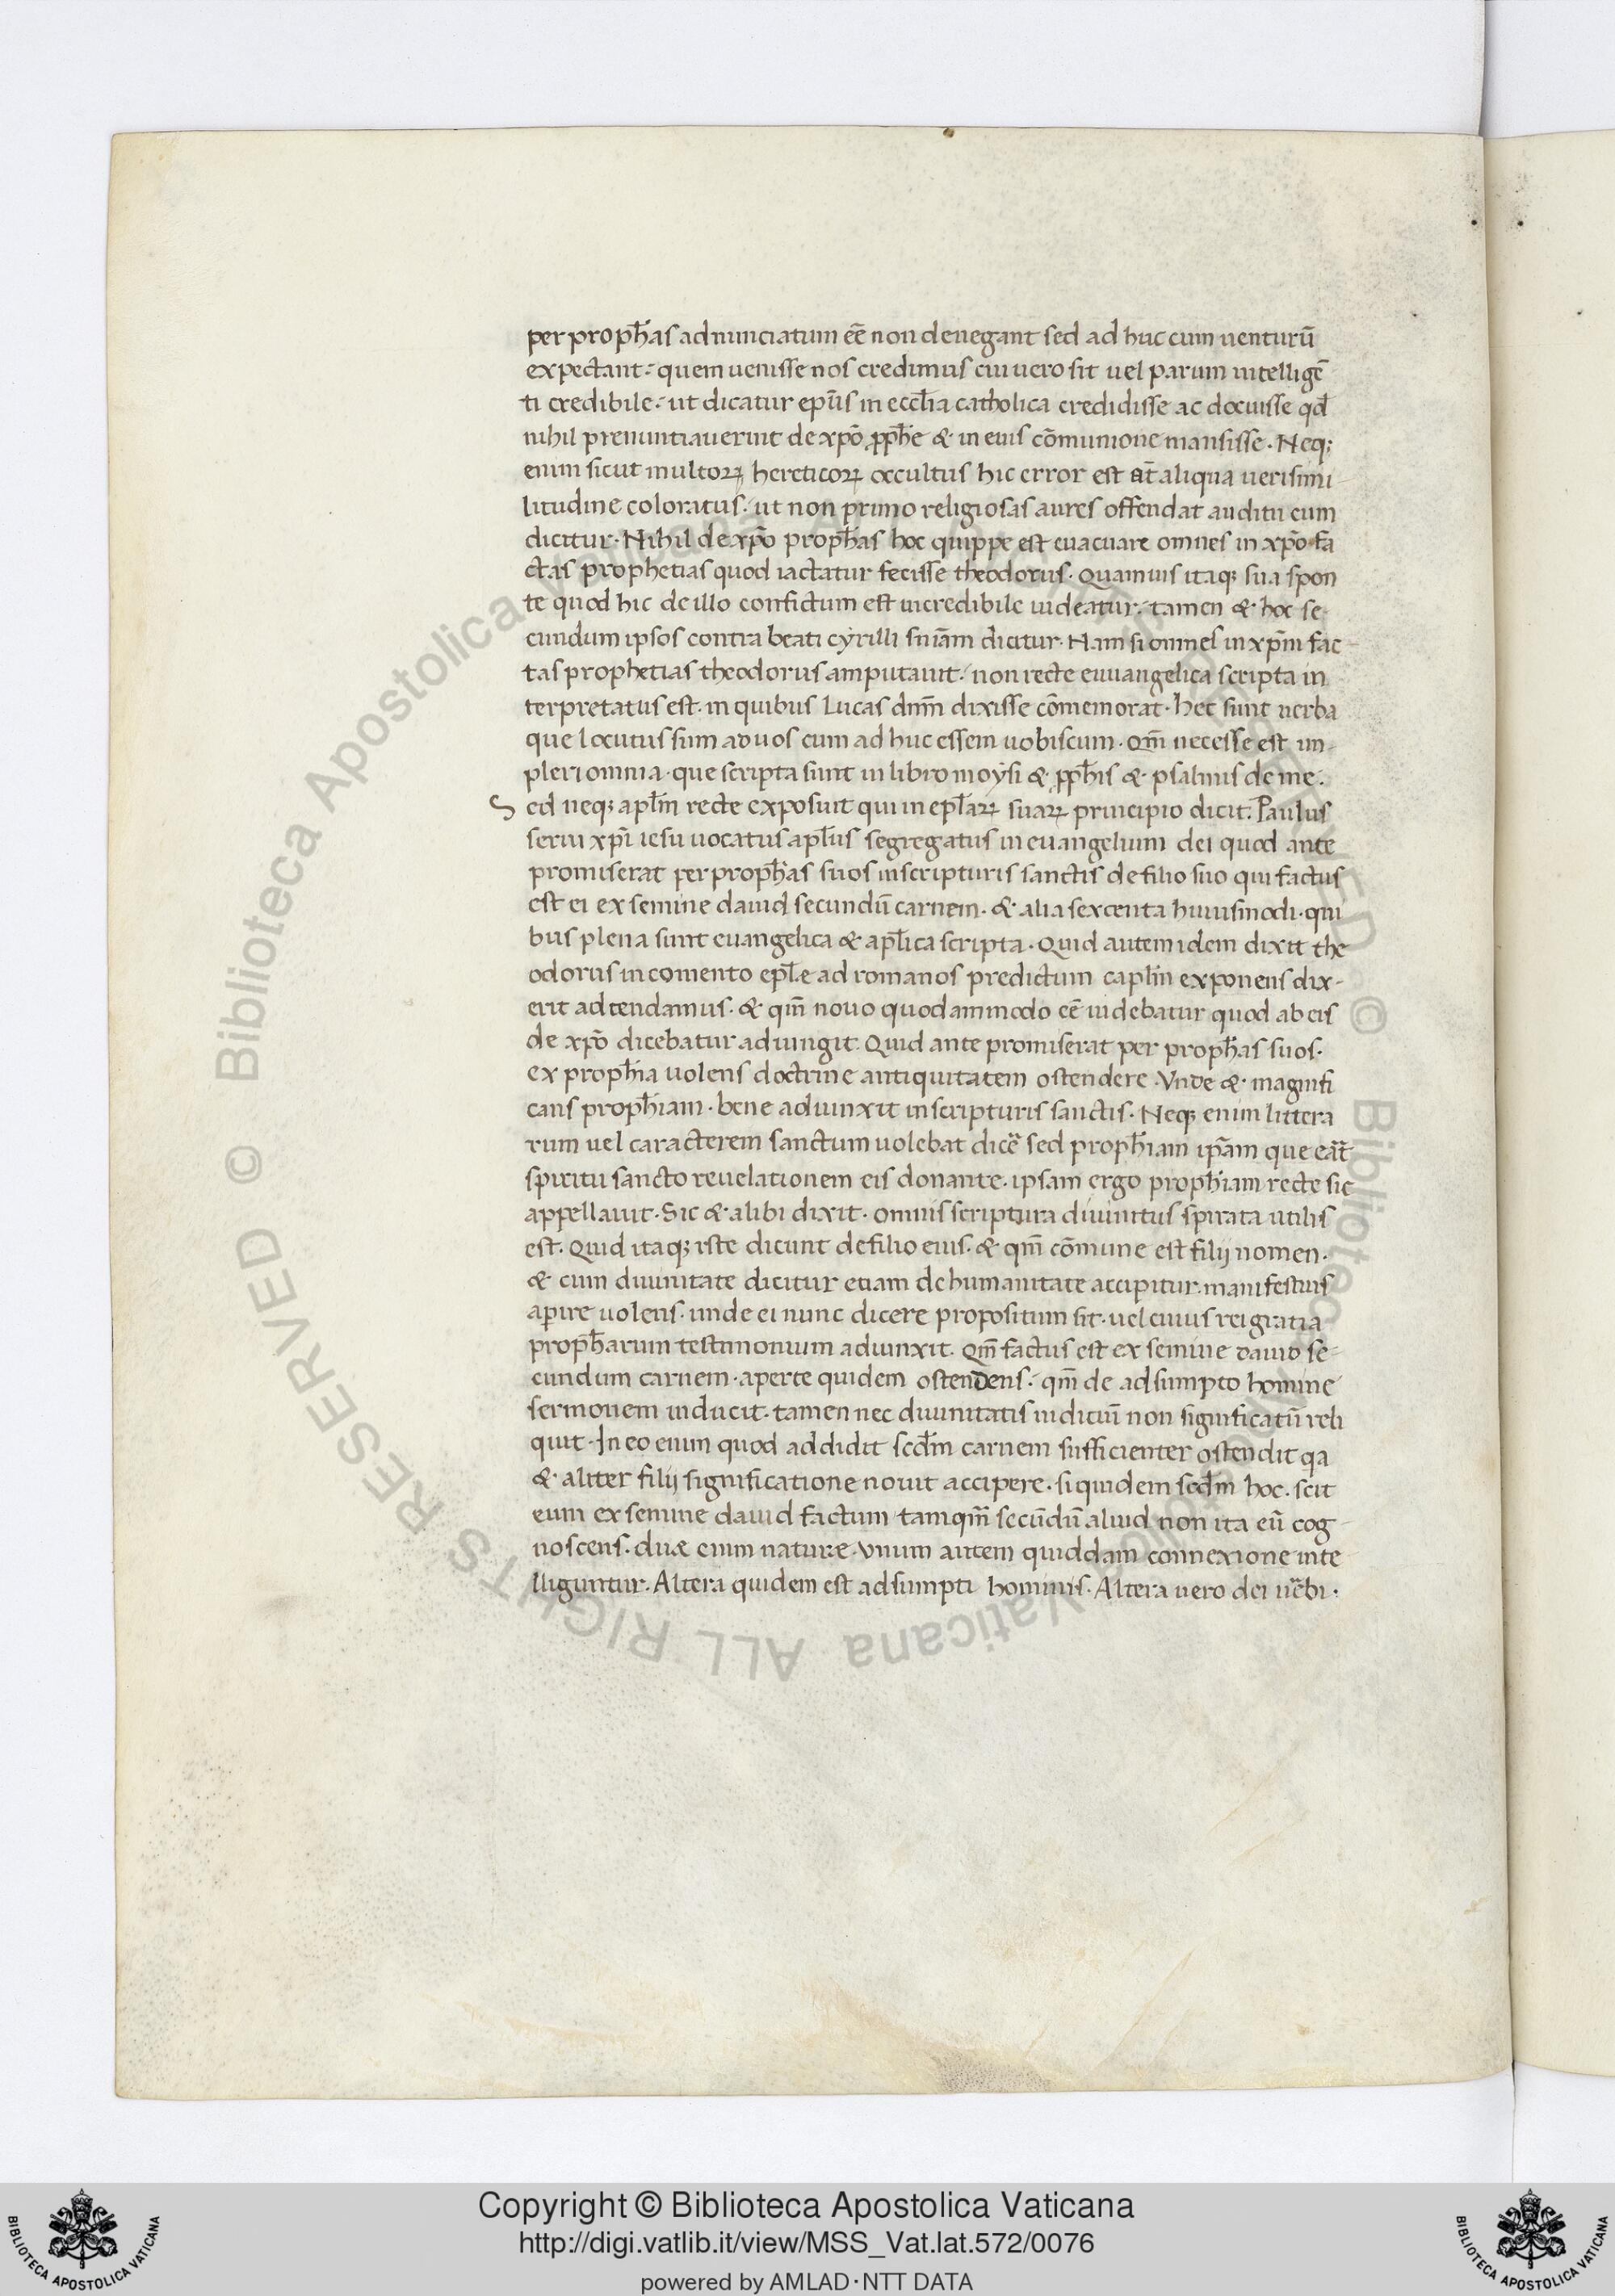 per proph̅as adnunciatum ee̅ non denegant sed ad huc cum uenturu̅
expectant· quem uenisse nos credimus cui uero sit uel parum intellige̅
ti credibile· ut dicatur epu̅s in eccl̅ia catholica credidisse ac docuisse qd̅
nihil prenuntiauerint de xpo̅ pph̅e & in eius co̅munione mansisse. Neq;
enim sicut multoꝝ hereticoꝝ occultus hic error est at̅ aliqua uerisimi
litudine coloratus· ut non primo religiosas aures offendat auditu cum
dicitur· Nihil de xpo̅ proph̅as hoc quippe est euacuare omnes in xpo̅ fa
ctas prophetias quod iactatur fecisse theodorus· Quamuis itaq; sua spon
te quod hic de illo confictum est incredibile uideatur· tamen & hoc se
cundum ipsos contra beati cyrilli sn̅iam dicitur· Nam si omnes in xpm̅ fac
tas prophetias theodorus amputauit· non recte euuangelica scripta in
terpretatus est· in quibus Lucas dnm̅ dixisse co̅memorat· hec sunt uerba
que locutus sum ad uos cum ad huc essem uobiscum· Qm̅ necesse est im
pleri omnia· que scripta sunt in libro moysi & pph̅is & psalmis de me·
Sed neq; apl̅m recte exposuit qui in epl̅aꝝ suaꝝ principio dicit. Paulus
seruu xpi̅ iesu uocatus apl̅us segregatus in euangelium dei quod ante
promiserat per proph̅as suos inscripturis sanctis de filio suo qui factus
est ei ex semine dauid secundu̅ carnem· & alia sexcenta huiusmodi· qui
bus plena sunt euangelica & apl̅ica scripta· Quid autem idem dixit the
odorus in comento epl̅e ad romanos predictum capl̅m exponens dix-
erit adtendamus· & qm̅ nouo quodammodo ee̅ uidebatur quod ab eis
de xpo̅ dicebatur adiungit. Quid ante promiserat per proph̅as suos·
ex proph̅ia uolens doctrine antiquitatem ostendere· Vnde & magnifi
cans proph̅iam· bene adiunxit in scripturis sanctis· Neq; enim littera
rum uel caracterem sanctum uolebat dice̅ sed proph̅iam ipa̅m que ea̅t
spiritu sancto reuelationem eis donante· ipsam ergo proph̅iam recte sic
appellauit· Sic & alibi dixit· omnis scriptura diuinitus spirata utilis
est. Quid itaq; iste dicunt de filio eius· & qm̅ co̅mune est filij nomen·
& cum diuinitate dicitur etiam de humanitate accipitur· manifestius
apire uolens· unde ei nunc dicere propositum sit· uel cuius rei gratia
proph̅arum testimonium adiunxit. Qm̅ factus est ex semine dauid se-
cundum carnem· aperte quidem ostendens· qm̅ de adsumpto homine
sermonem inducit· tamen nec diuinitatis iudiciu̅ non significatu̅ reli
quit· In eo enim quod addidit scd̅m carnem sufficienter ostendit qa
& aliter filij significatione nouit accipere· siquidem scd̅m hoc· scit
eum ex semine dauid factum tamqm̅ secu̅du̅ aliud non ita eu̅ cog
noscens· duæ enim nature· Vnum autem quiddam connexione inte
lliguntur· Altera quidem est adsumpti hominis· Altera uero dei ue̅bi·
Copyright © Biblioteca Apostolica Vaticana
http://digi.vatlib.it/view/MSS_Vat.lat.572/0076
powered by AMLAD·NTT DATA
BIBLIOTECA APOSTOLICA VATICANA
BIBLIOTECA APOSTOLICA VATICANA
© Biblioteca Apostolica Vaticana ALL RIGHTS RESERVED